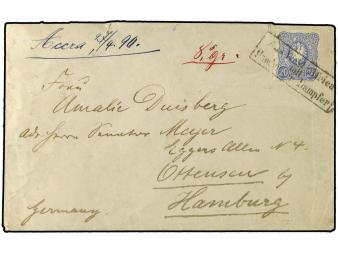 Accra, 27/4. 90.
Frau
Amalie Duisberg
adr. Herrn Senator Meyer
Eggers Allee N 4.
Ottensen by
Hamburg
Germany.